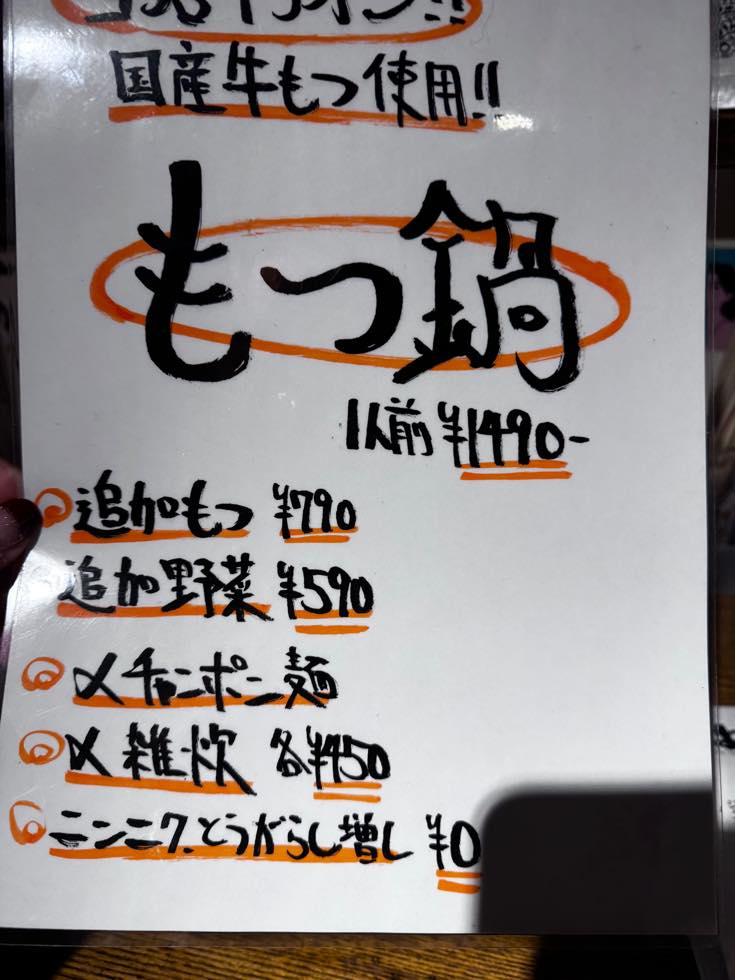 国産牛もつ使用!!
もつ鍋
1人前 ¥1490-
追加もつ ¥790
追加野菜 ¥590
〆チャンポン麺
〆雑炊 各¥450
ニンニク、とうがらし増し ¥0